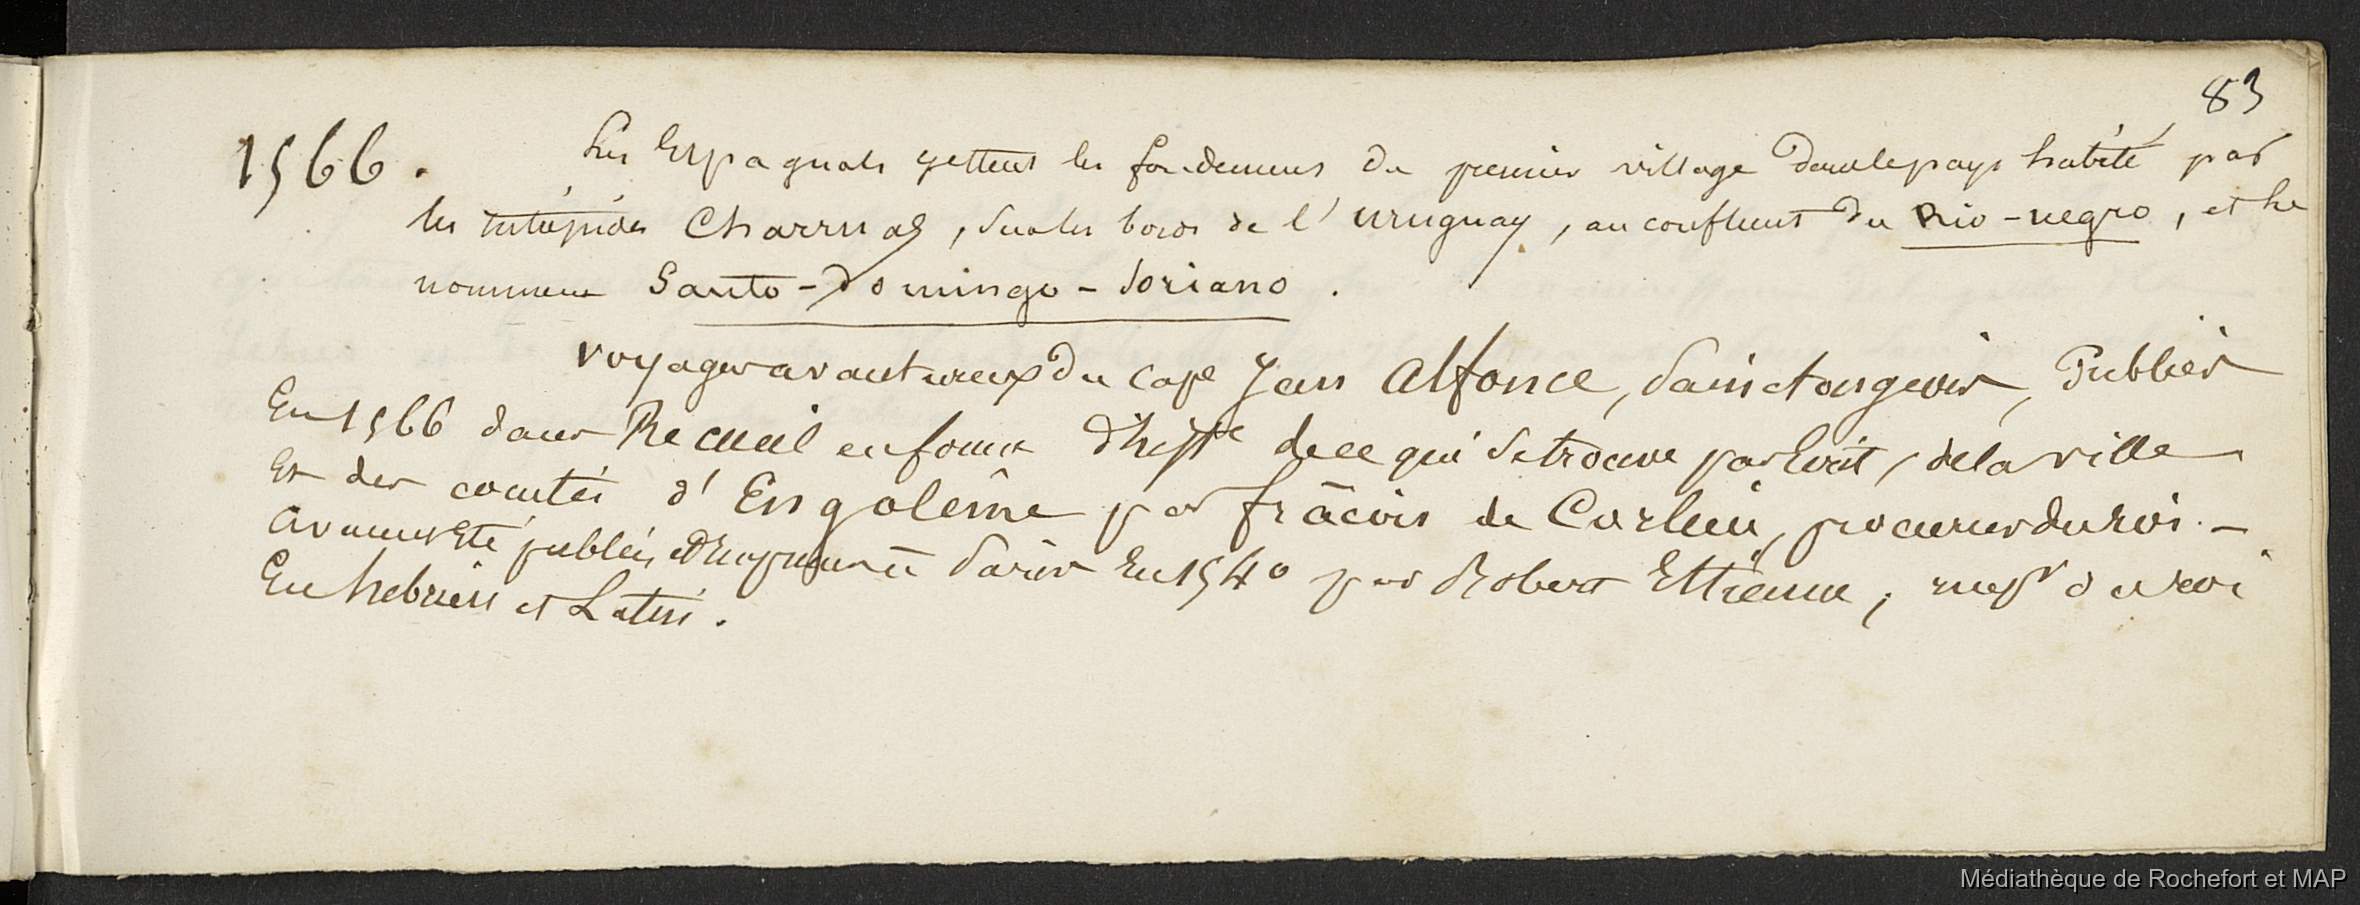 83
1566. Les Espagnols gettent les fondemens du premier village dans le pays habité par
les intrépides Charruas, sur les bords de l'uruguay, au confluent du Rio-negro, et le
nomment Santo-Domingo-Soriano.
Voyages avantureux du Cape Jean Alfonce, Sainctongeois, Publiés
En 1566 dans Recueil en forme d'histe de ce qui se trouve par Ecrit, de la ville
Et des comtés d'Engolême par frãcois de Corlieu, procureur du roi. -
avaient Eté publiés à Paris En 1540 par Robert Ettienne, du roi
En hebrieu et Latin.
Médiathèque de Rochefort et MAP